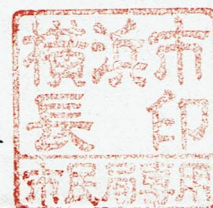 横浜市
長印
市民局専用